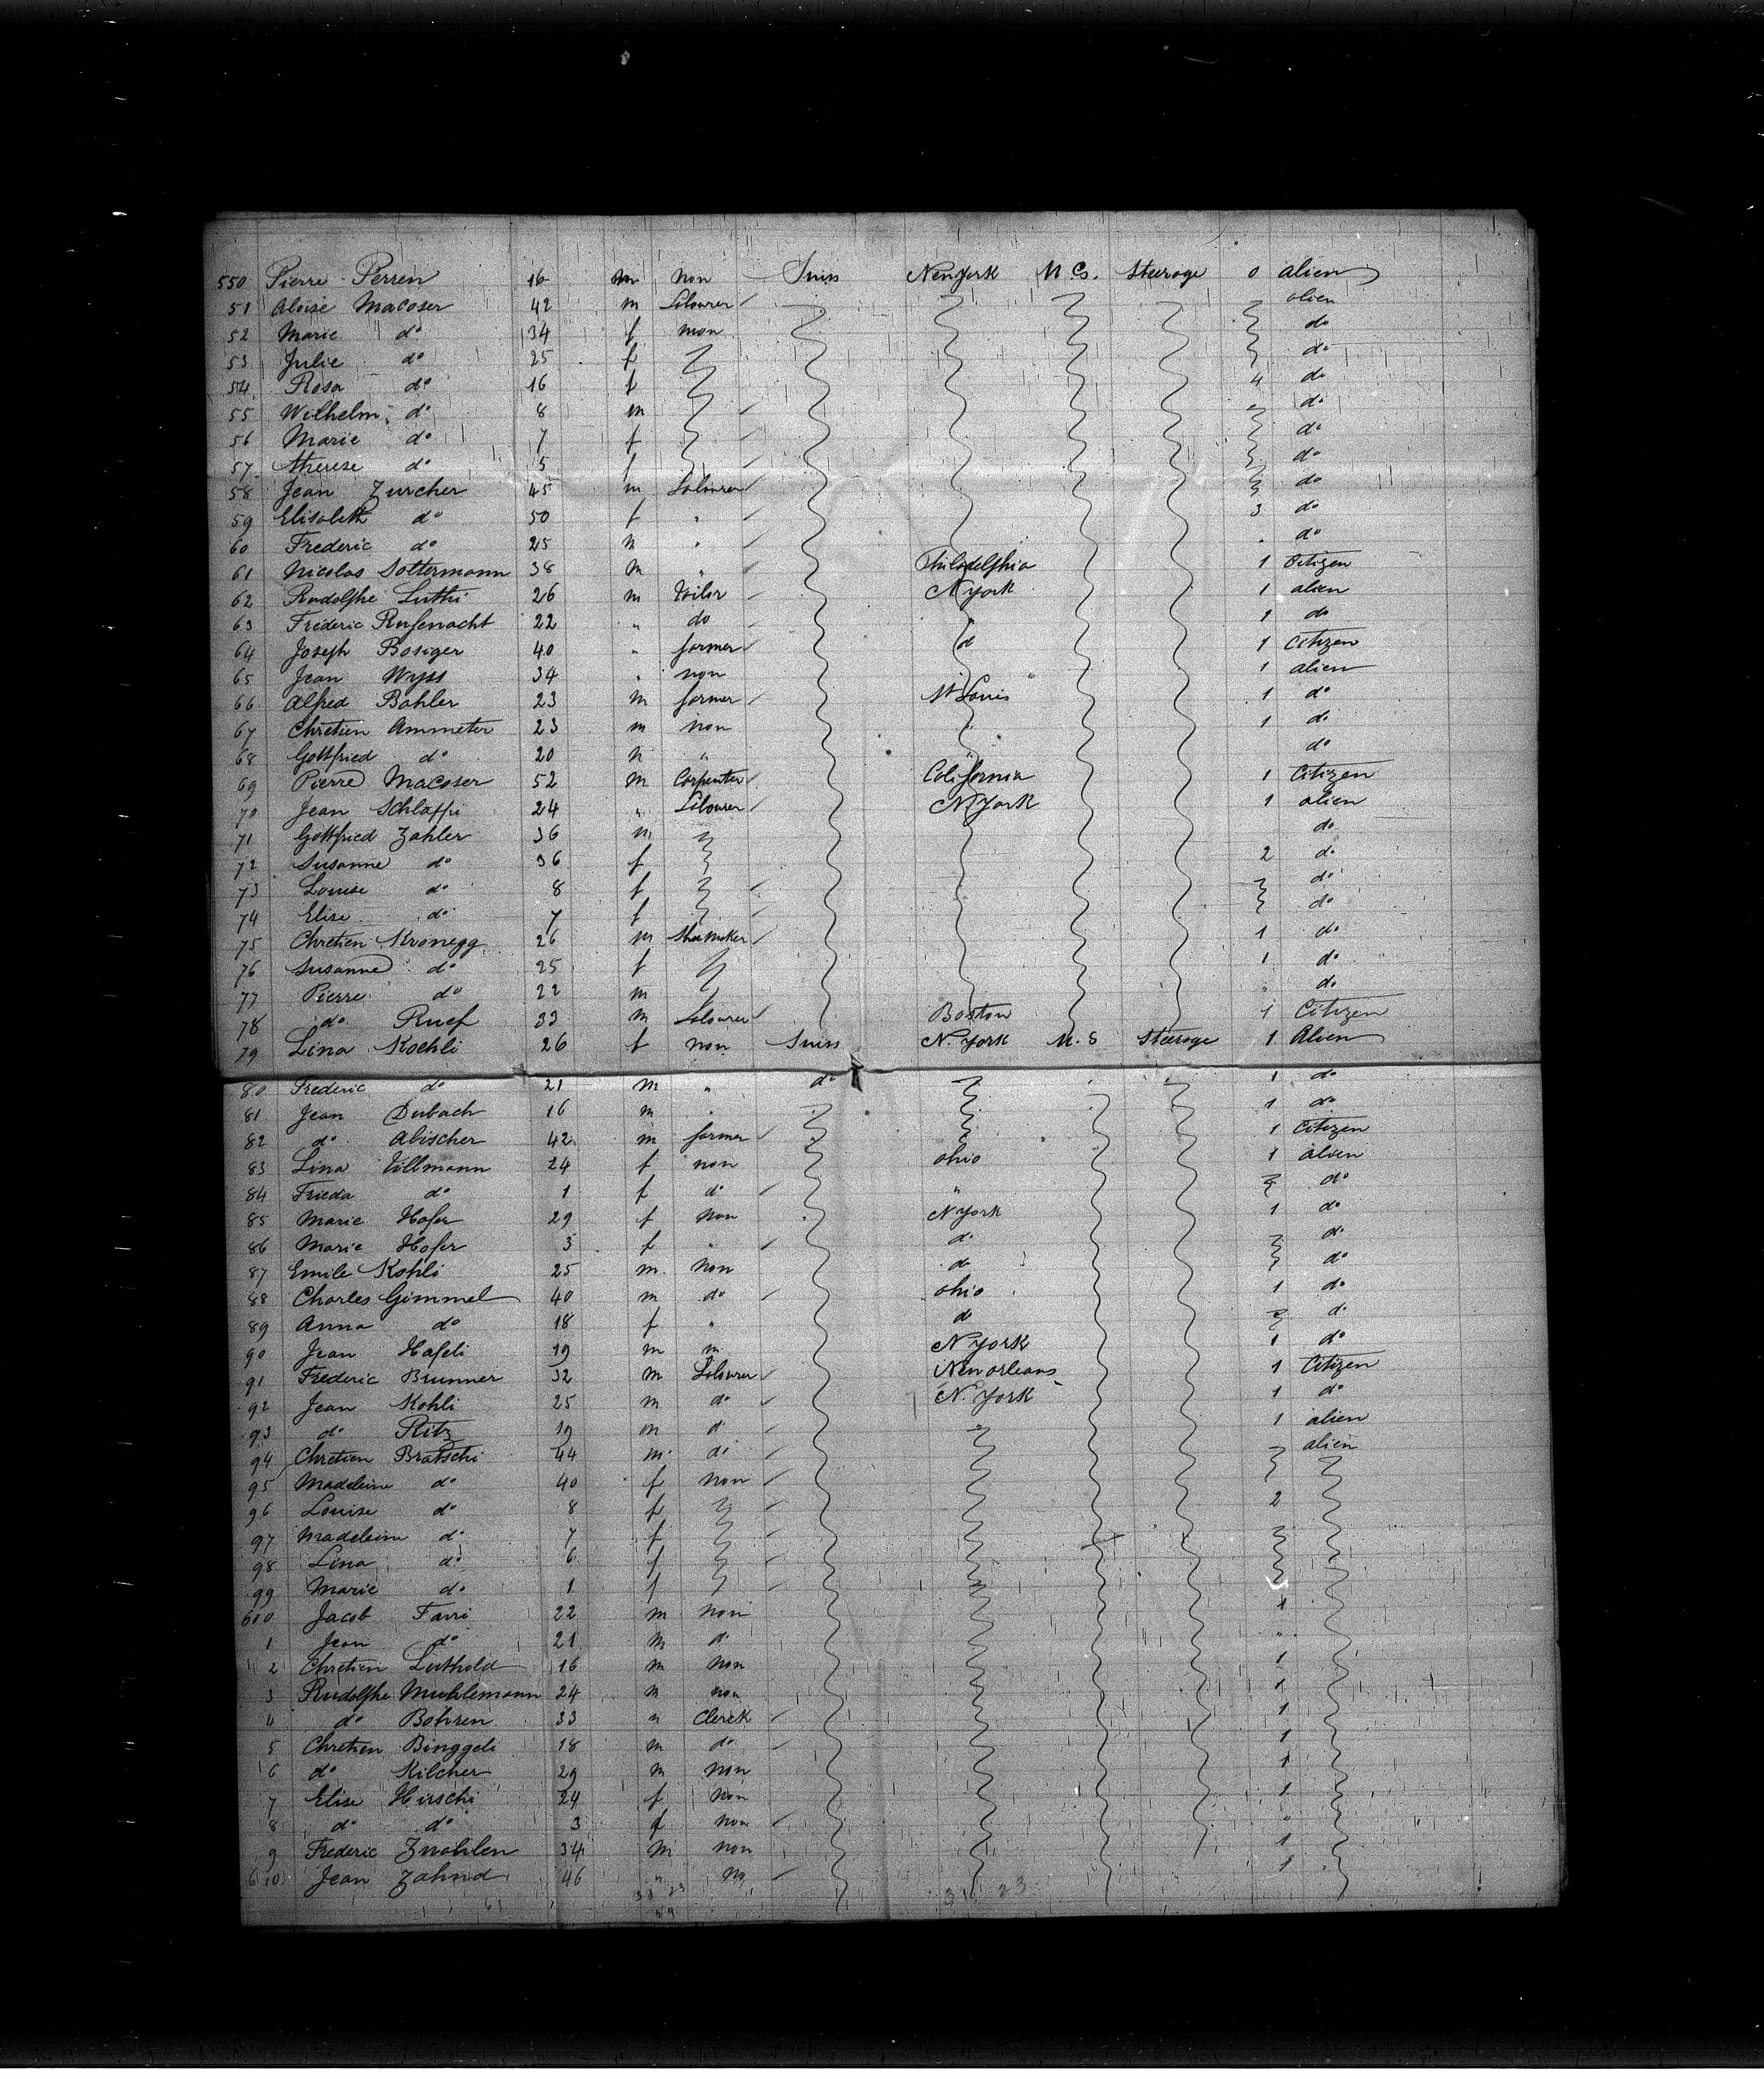 550 Pierre Perren 16 m non Suiss New York U Cs. Steerage 0 alien
51 Aloise Macoser 42 m Labourer alien
52 Marie do 34 f non do
53 Julie do 25 f do
54 Rosa do 16 f 4 do
55 Wilhelm do 8 m do
56 Marie do 7 f do
57 therese do 5 f do
58 Jean Zurcher 45 m Labourer do
59 Elisabeth do 50 f " 3 do
60 Frederic do 25 m " " do
61 Nicolas Soltermann 38 m " Philadelphia 1 Citizen
62 Rudolphe Luthi 26 m tailor N York 1 alien
63 Frederic Rufenacht 22 " do 1 do
64 Joseph Bosiger 40 " farmer d 1 Citizen
65 Jean Wyss 34 " non " 1 alien
66 Alfred Bahler 23 m farmer St Louis 1 do
67 Chretien Ammeter 23 m non 1 do
68 Gottfried do 20 m " " do
69 Pierre Macoser 52 m Carpenter California 1 Citizen
70 Jean Schlappi 24 " Labourer N York 1 alien
71 Gottfried Zahler 36 m do
72 Susanne do 36 f 2 do
73 Louise do 8 f do
74 Elise do 7 f do
75 Chretien Kronegg 26 m Shoemaker 1 do
76 Susanne do 25 f 1 do
77 Pierre do 22 m " do
78 do Ruef 33 m Labourer Boston 1 Citizen
79 Lina Koehli 26 f non Suiss N. York U. S Steerage 1 Alien
80 Frederic do 21 m " do 1 do
81 Jean Dubach 16 m " 1 do
82 do Abischer 42 m farmer 1 Citizen
83 Lina Ullmann 24 f non ohio 1 alien
84 Frieda do 1 f do " do
85 Marie Hofer 29 f non N York 1 do
86 Marie Hofer 3 f " do do
87 Emile Kohli 25 m non do do
88 Charles Gimmel 40 m do ohio 1 do
89 Anna do 18 f " do do
90 Jean Hafeli 19 m " N York 1 do
91 Frederic Brunner 32 m Labourer New orleans 1 Citizen
92 Jean Kohli 25 m do N. York 1 do
93 do Ritz 19 m do 1 alien
94 Chretien Bratschi 44 m do alien
95 Madeleine do 40 f non
96 Louise do 8 f 2
97 Madeleine do 7 f
98 Lina do 6 f
99 Marie do 1 f
600 Jacob Farri 22 m non 1
1 Jean do 21 m do "
2 Chretien Luthold 16 m non 1
3 Rudolphe Muhlemann 24 m non 1
4 do Bohren 33 " Clerck 1
5 Chretien Binggeli 18 m do 1
6 do Kilcher 29 m non 1
7 Elise Hirschi 24 f non 1
8 do do 3 f non "
9 Frederic Zwahlen 34 m non 1
610 Jean Zahnd 46 " no 1
61 38 23 38 23